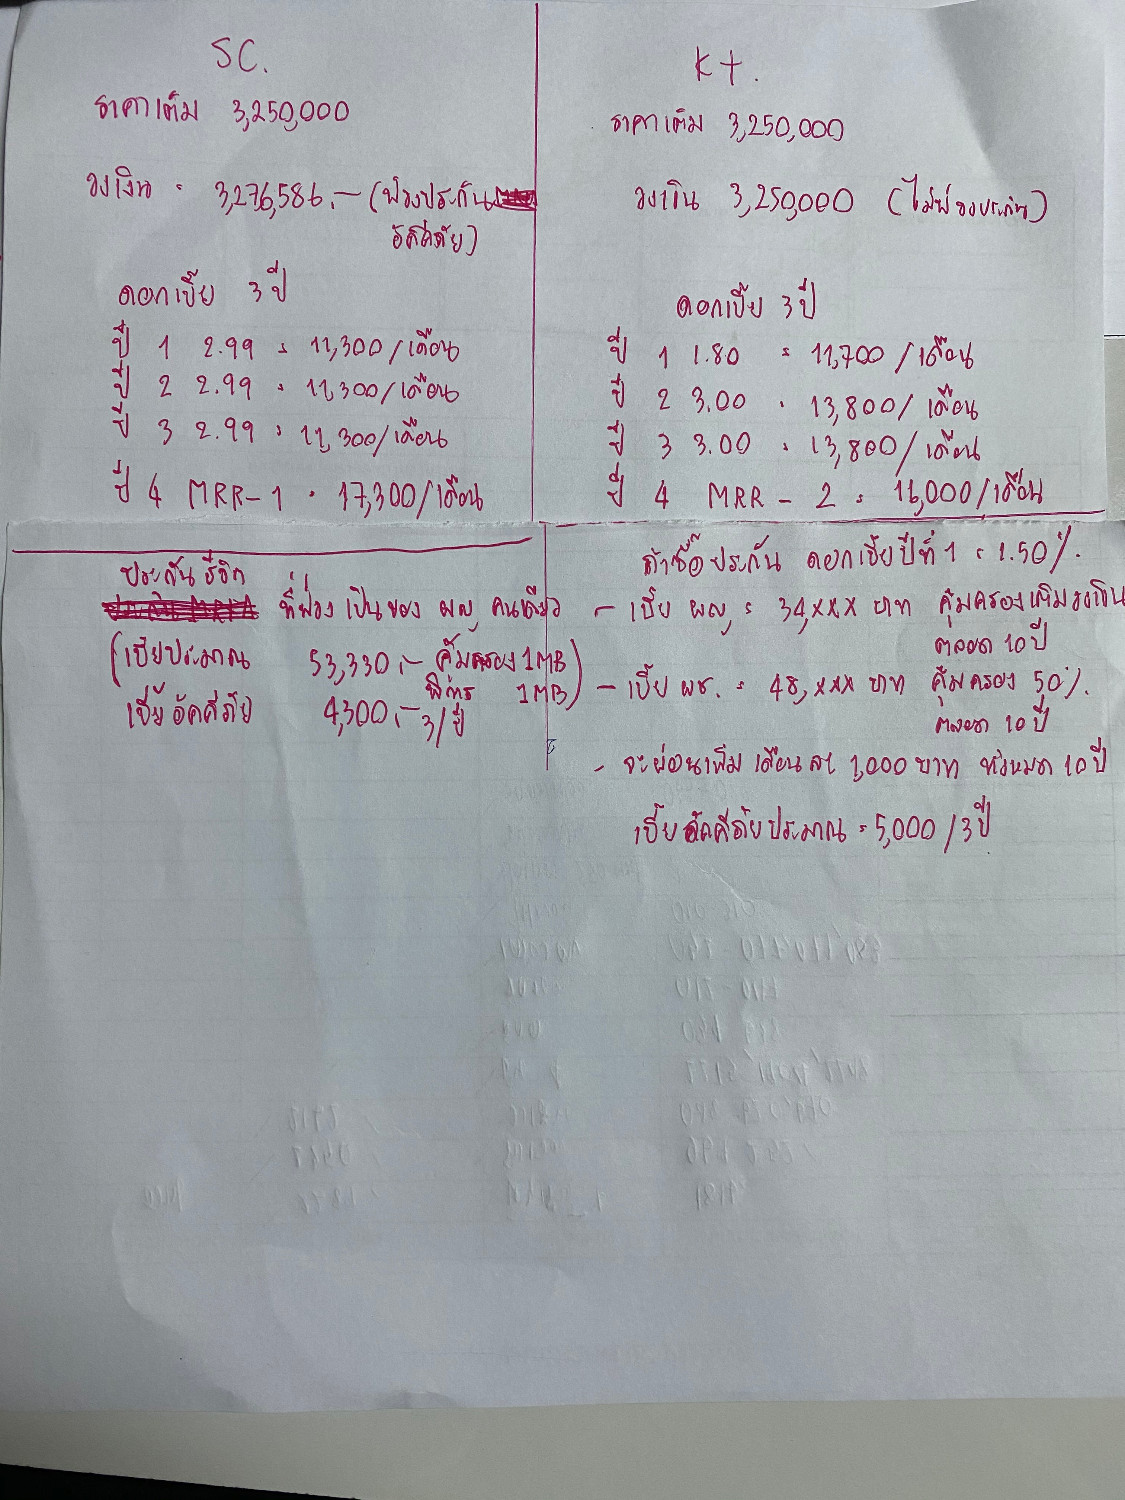 SC.
ราคาเต็ม 3,250,000
วงเงิน = 3,276,586.- (พ่วงประกัน
อัคคีภัย)
ดอกเบี้ย 3 ปี
ปี 1 2.99 = 11,300/เดือน
ปี 2 2.99 = 11,300/เดือน
ปี 3 2.99 = 11,300/เดือน
ปี 4 MRR-1 = 17,300/เดือน
ประกันชีวิต
ที่พ่วงเป็นของ ผญ คนเดียว
(เบี้ยประมาณ 53,330.- คุ้มครอง 1MB
พิการ 1MB)
เบี้ยอัคคีภัย 4,300.- 3/ปี
Kt.
ราคาเต็ม 3,250,000
วงเงิน 3,250,000 (ไม่พ่วงประกัน)
ดอกเบี้ย 3 ปี
ปี 1 1.80 = 11,700/เดือน
ปี 2 3.00 = 13,800/เดือน
ปี 3 3.00 = 13,800/เดือน
ปี 4 MRR - 2 = /เดือน
ถ้าซื้อประกัน ดอกเบี้ยปีที่ 1 = 1.50%.
- เบี้ย ผญ = 34,xxx บาท คุ้มครองเต็มวงเงิน
ตลอด 10 ปี
- เบี้ย ผช. = 48,xxx บาท คุ้มครอง 50%.
ตลอด 10 ปี
- จะผ่อนเพิ่มเดือนละ 1,000 บาท ทั้งหมด 10 ปี
เบี้ยอัคคีภัยประมาณ = 5,000/3 ปี